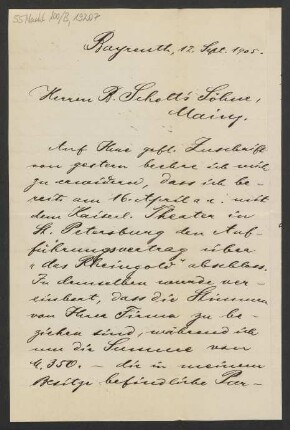 55 Nachl 100/B, 13207
Bayreuth, 12. Sept. 1905.
Herren B. Schott's Söhne,
Mainz.
Auf Ihre gefl. Zuschrift
von gestern beehre ich mich
zu erwidern, dass ich be-
reits am 16. April a. c. mit
dem Kaiserl. Theater in
St. Petersburg den Auf-
führungsvertrag über
"des Rheingold" abschloss.
In demselben wurde ver-
einbart, dass die Stimmen
von Ihrer Firma zu be-
ziehen sind, während ich
um die Summe von
350. – die in meinem
Besitze befindliche Par-